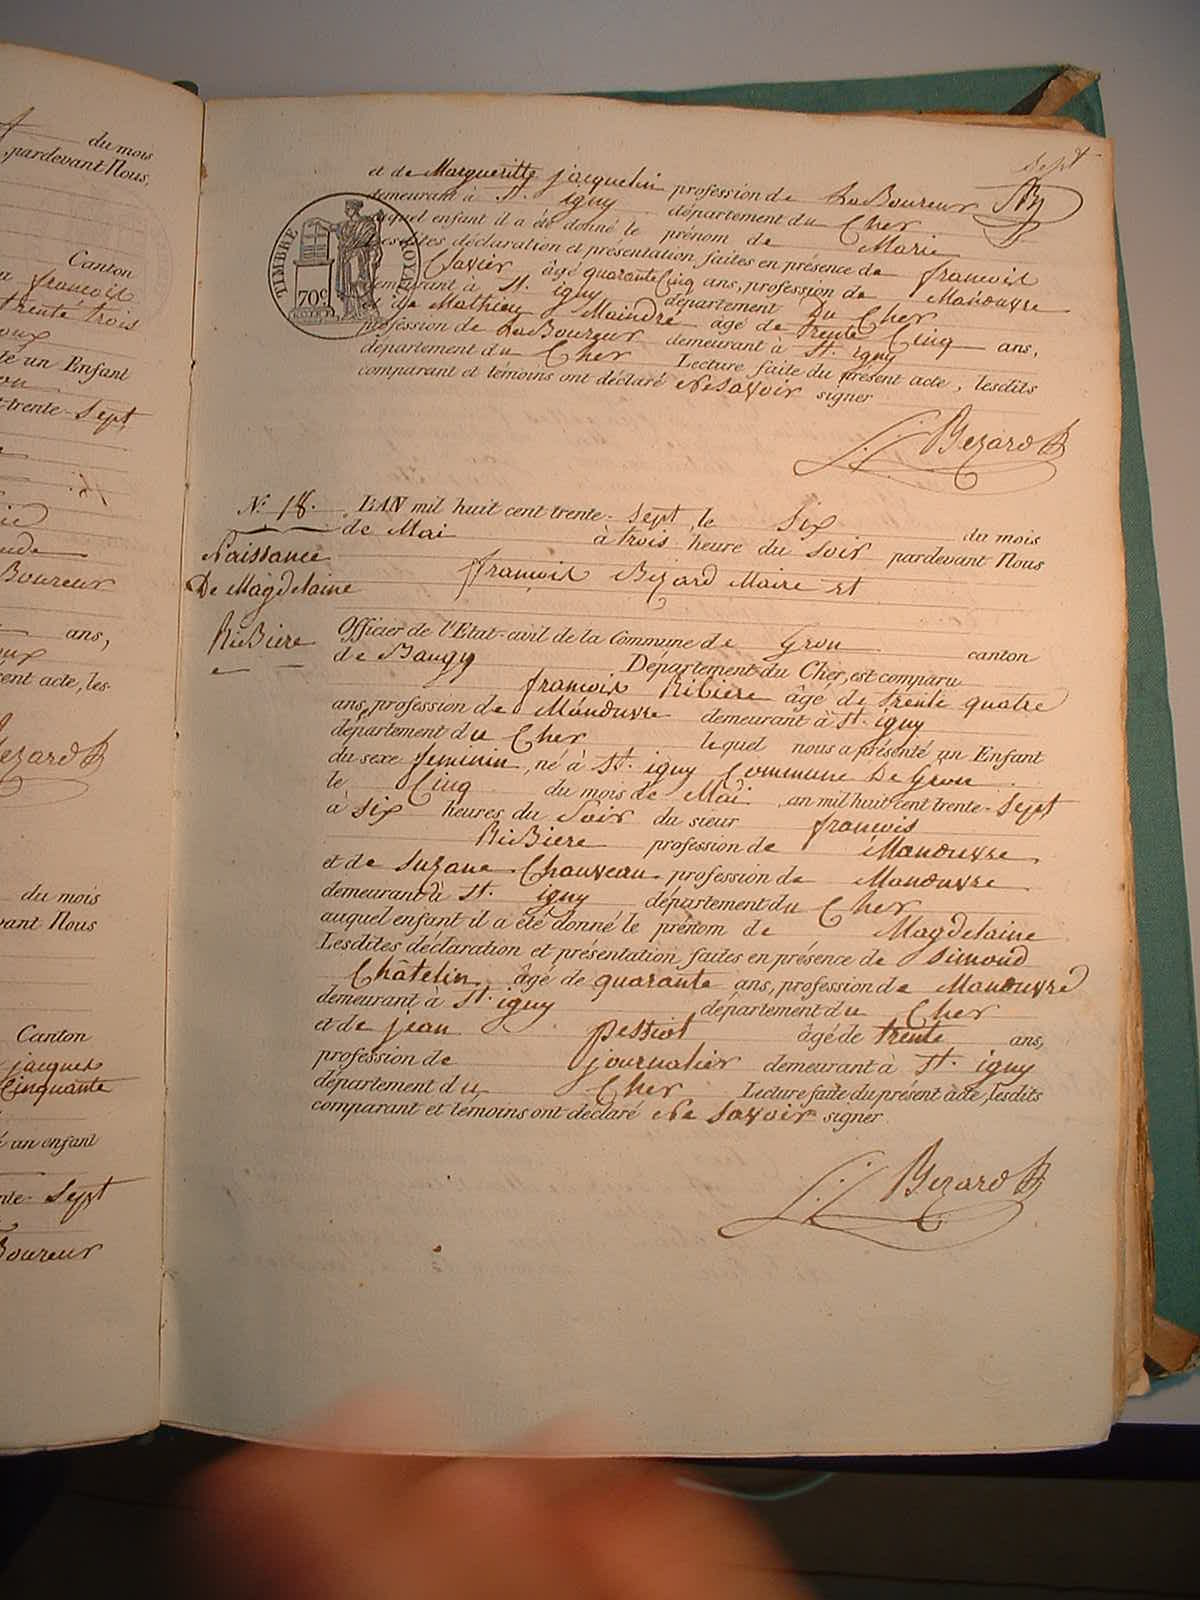 du mois
pardevant Nous,
Canton
francoix
trente trois
un Enfant
trente-Sept
Boureur
ans,
cent acte, les-
Bezard
du mois
vant Nous
Canton
jacques
Cinquante
un enfant
Sept
Boureur
Sept
et de Margueritte jacquelin profession de LaBoureur
demeurant à St. igny département du Cher
auquel enfant il a été donné le prénom de Marie
Lesdites déclaration et présentation faites en présence de francoix
Clavier âgé quarante Cinq ans, profession de Manœuvre
demeurant à St. igny département Du Cher
et de Mathieu Maindré âgé de trente Cinq ans,
profession de LaBoureur demeurant à St. igny
département du Cher Lecture faite du présent acte, lesdits
comparant et témoins ont déclaré Ne Savoir signer
TIMBRE ROYAL
70c
Bezard
N.º 18. L'AN mil huit cent trente-Sept, le Six du mois
de Mai à trois heure du Soir pardevant Nous
Naissance
francoix Bezard Maire Et
De Magdelaine
RiBiere
Officier de l'Etat-civil de la Commune de Gron canton
de Baugy Département du Cher, est comparu
francoix Ribiere âgé de trente quatre
ans, profession de Manœuvre demeurant à St. igny
département du Cher lequel nous a présenté un Enfant
du sexe feminin, né à St. igny Commune De Gron
le Cinq du mois de Mai an mil huit cent trente-Sept
à Six heures du Soir du sieur francois
RiBiere profession de Manœuvre
et de Suzane Chauveau profession de Manœuvre
demeurant à St. igny département du Cher
auquel enfant il a été donné le prénom de Magdelaine
Lesdites déclaration et présentation faites en présence de Simond
Châtelin âgé de quarante ans, profession de Manœuvre
demeurant à St. igny département du Cher
et de jean Pessiot âgé de trente ans,
profession de journalier demeurant à St. igny
département du Cher Lecture faite du présent acte, lesdits
comparant et témoins ont déclaré Ne Savoir signer
Bezard